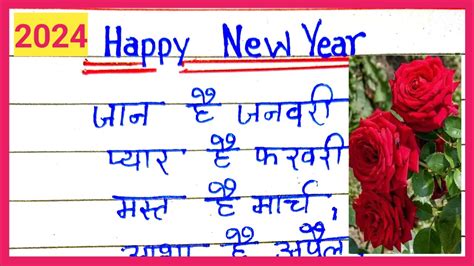 2024
Happy New Year
जान है जनवरी
प्यार है फरवरी
मस्त है मार्च,
आशा है अप्रैल